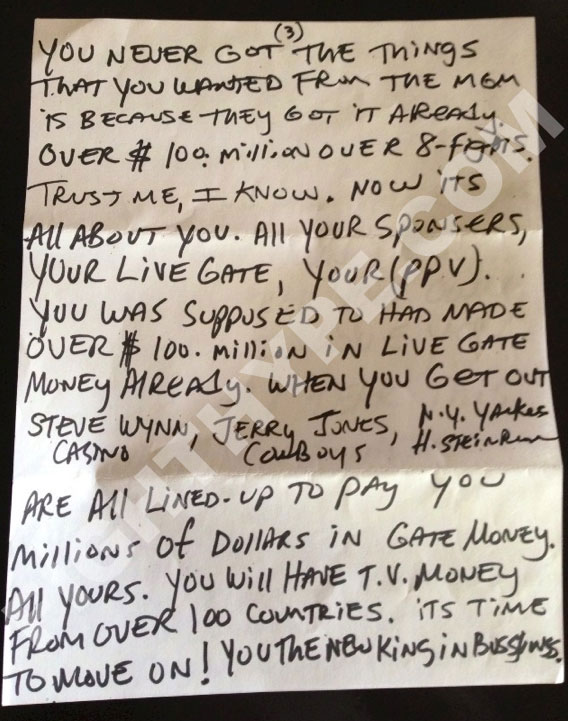 (3)
YOU NEVER GOT THE THINGS
THAT YOU WANTED FROM THE MGM
IS BECAUSE THEY GOT IT ALREADY.
OVER $ 100. MILLION OVER 8-FIGHTS.
TRUST ME, I KNOW. NOW ITS
All ABOUT YOU. All YOUR SPONSERS,
YOUR LIVE GATE, YOUR (PPV).
YOU WAS SUPPUSED TO HAD MADE
OVER $ 100. MILLION IN LIVE GATE
MONEY AlREADY. WHEN YOU GET OUT
STEVE WYNN, JERRY JONES, N.Y. YANKEES
CASINO COWBOYS H. STEINBRENNER
ARE All LINED-UP TO PAY YOU
MILLIONS OF DOLLARS IN GATE MONEY.
All YOURS. YOU WILL HAVE T.V. MONEY
FROM OVER 100 COUNTRIES. ITS TIME
TO MOVE ON! YOU THE NEW KING IN
GHTHYPE.COM